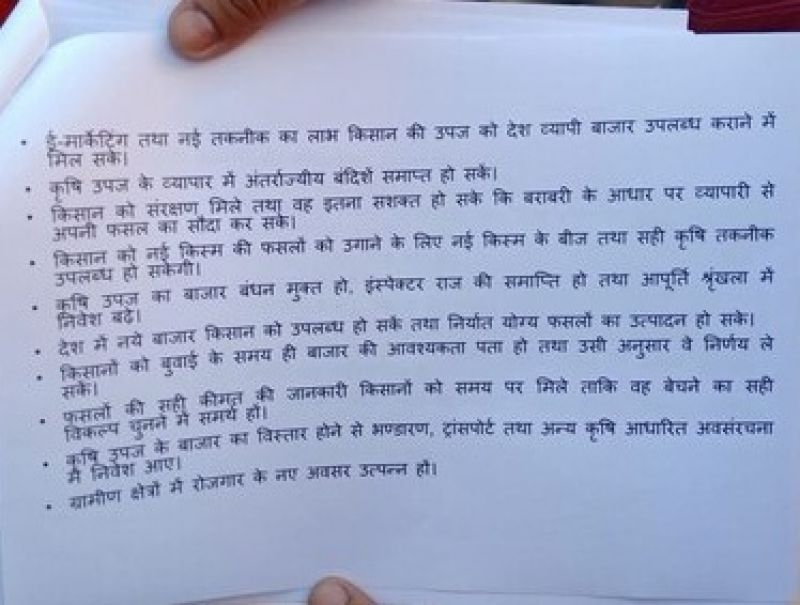 • ई-मार्केटिंग तथा नई तकनीक का लाभ किसान की उपज को देश व्यापी बाजार उपलब्ध कराने में
मिल सके।
• कृषि उपज के व्यापार में अंतर्राज्यीय बंदिशें समाप्त हो सकें।
• किसान को संरक्षण मिले तथा वह इतना सशक्त हो सके कि बराबरी के आधार पर व्यापारी से
अपनी फसल का सौदा कर सके।
• किसान को नई किस्म की फसलों को उगाने के लिए नई किस्म के बीज तथा सही कृषि तकनीक
उपलब्ध हो सकेगी।
• कृषि उपज का बाजार बंधन मुक्त हो, इंस्पेक्टर राज की समाप्ति हो तथा आपूर्ति श्रृंखला में
निवेश बढ़े।
• देश में नये बाजार किसान को उपलब्ध हो सके तथा निर्यात योग्य फसलों का उत्पादन हो सके।
• किसानों को बुवाई के समय ही बाजार की आवश्यकता पता हो तथा उसी अनुसार वे निर्णय ले
सकें।
• फसलों की सही कीमत की जानकारी किसानों को समय पर मिले ताकि वह बेचने का सही
विकल्प चुनने में समर्थ हों।
• कृषि उपज के बाजार का विस्तार होने से भण्डारण, ट्रांसपोर्ट तथा अन्य कृषि आधारित अवसंरचना
में निवेश आए।
• ग्रामीण क्षेत्रों में रोजगार के नए अवसर उत्पन्न हों।